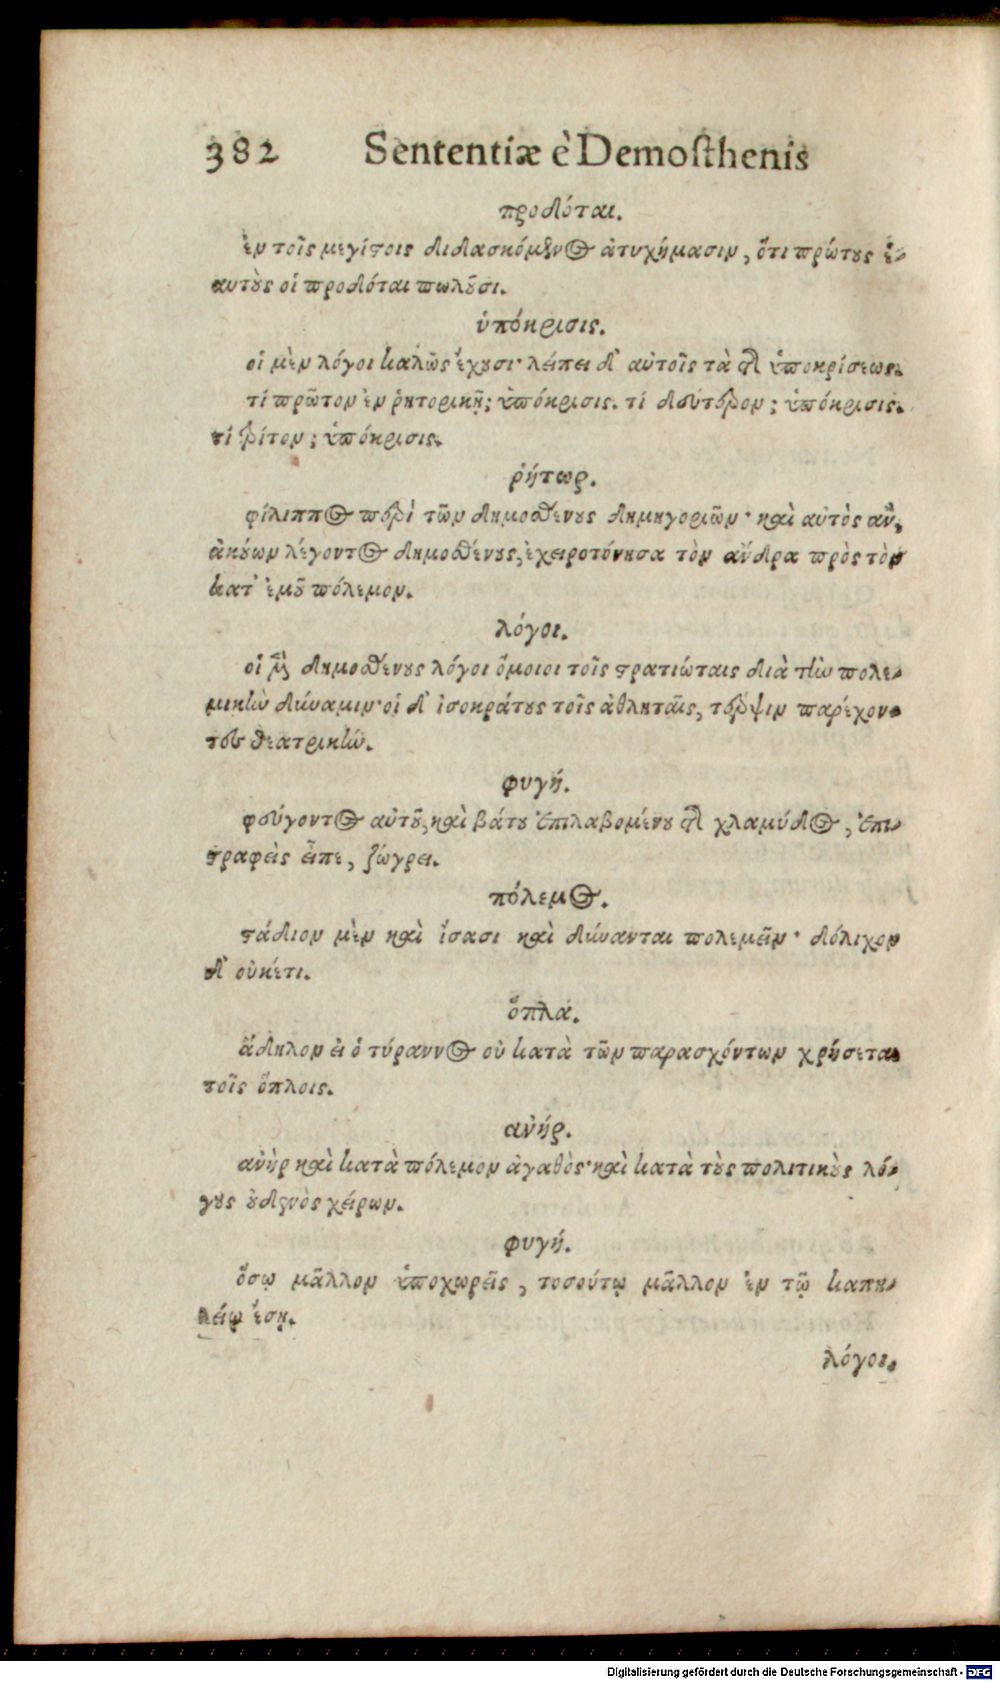 382 Sententiæ è Demosthenis
προδόται.
ἐν τοῖς μεγίστοις διδασκόμενος ἀτυχήμασιν, ὅτι πρώτους ἑ-
αυτοὺς οἱ προδόται πωλοῦσι.
ὑπόκρισις.
οἱ μὲν λόγοι καλῶς ἔχουσι· λείπει δ' αὐτοῖς τὰ τῆς ὑποκρίσεως.
τί πρῶτον ἐν ῥητορικῇ; ὑπόκρισις. τί δεύτερον; ὑπόκρισις.
τί τρίτον; ὑπόκρισις.
ῥήτωρ.
φίλιππος περὶ τῶν δημοσθένους δημηγοριῶν· καὶ αὐτὸς ἂν,
ἀκούων λέγοντος δημοσθένους, ἐχειροτόνησα τὸν ἄνδρα πρὸς τὸν
κατ' ἐμοῦ πόλεμον.
λόγοι.
οἱ μὲν δημοσθένους λόγοι ὅμοιοι τοῖς στρατιώταις διὰ τὴν πολε-
μικὴν δύναμιν· οἱ δ' ἰσοκράτους τοῖς ἀθληταῖς, τέρψιν παρέχον-
τες θεατρικήν.
φυγή.
φεύγοντος αὐτοῦ, καὶ βάτου ἐπιλαβομένου τῆς χλαμύδος, ἐπι-
στραφεὶς εἶπε, ζώγρει.
πόλεμος.
στάδιον μὲν καὶ ἴσασι καὶ δύνανται πολεμεῖν· δόλιχον
δ' οὐκέτι.
ὅπλα.
ἄδηλον εἰ ὁ τύραννος οὐ κατὰ τῶν παρασχόντων χρήσεται
τοῖς ὅπλοις.
ἀνήρ.
ἀνὴρ καὶ κατὰ πόλεμον ἀγαθὸς· καὶ κατὰ τοὺς πολιτικοὺς λό-
γους οὐδενὸς χείρων.
φυγή.
ὅσῳ μᾶλλον ὑποχωρεῖς, τοσούτῳ μᾶλλον ἐν τῷ καπη-
λείῳ ἔσῃ.
λόγοι.
Digitalisierung gefördert durch die Deutsche Forschungsgemeinschaft - DFG